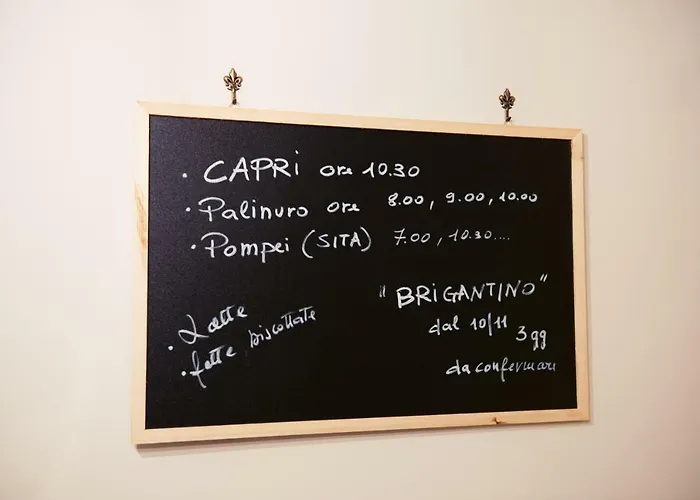 · CAPRI ore 10.30
· Palinuro ore 8.00, 9.00, 10.00
· Pompei (SITA) 7.00, 10.30....
"BRIGANTINO"
dal 10/11 3 gg
da confermare
· Latte
· fette biscottate